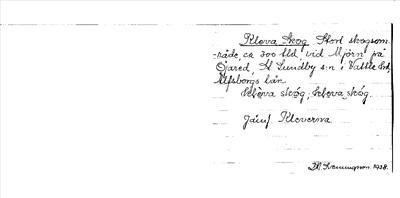 Kleva Skog Stort skogsom-
råde, ca 300 tld vid Mjörn på
Öjared, St Lundby s:n i Vättle hd,
Älfsborgs län.
klèva skóg, kleva skóg.
Jämf. Kleverna
1928.